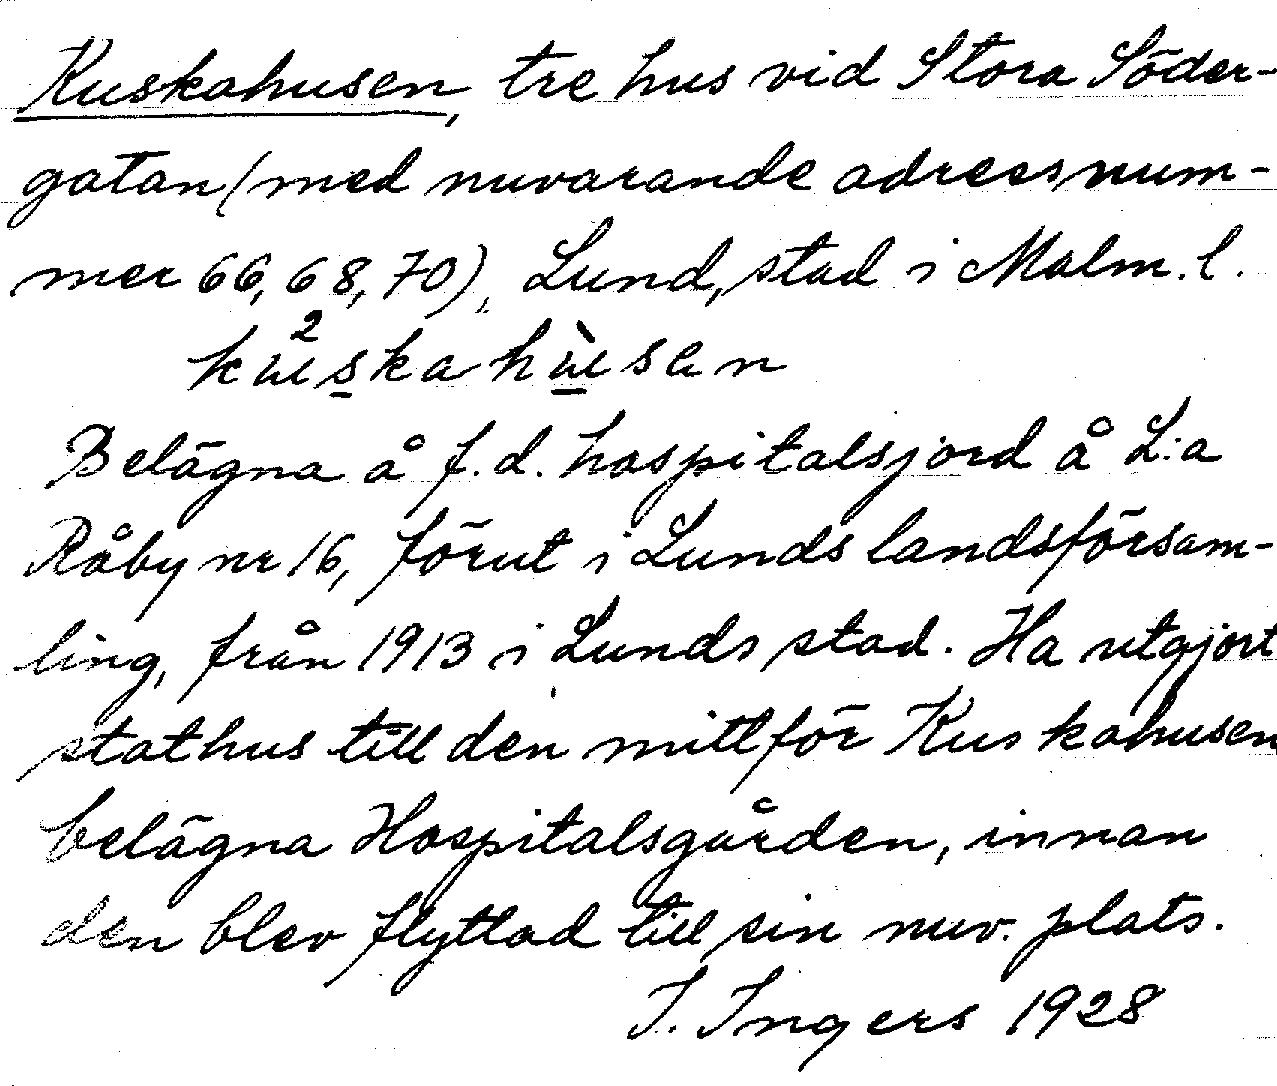 Kuskahusen, tre hus vid Stora Söder-
gatan (med nuvarande adressnum-
mer 66, 68, 70), Lund, stad i Malm. l.
kuskahusen
Belägna å f. d. hospitalsjord å L:a
Råby nr 16, förut i Lunds landsförsam-
ling, från 1913 i Lunds stad. Ha utgjort
stathus till den mittför Kuskahusen
belägna Hospitalsgården, innan
den blev flyttad till sin nuv. plats.
I. Ingers 1928